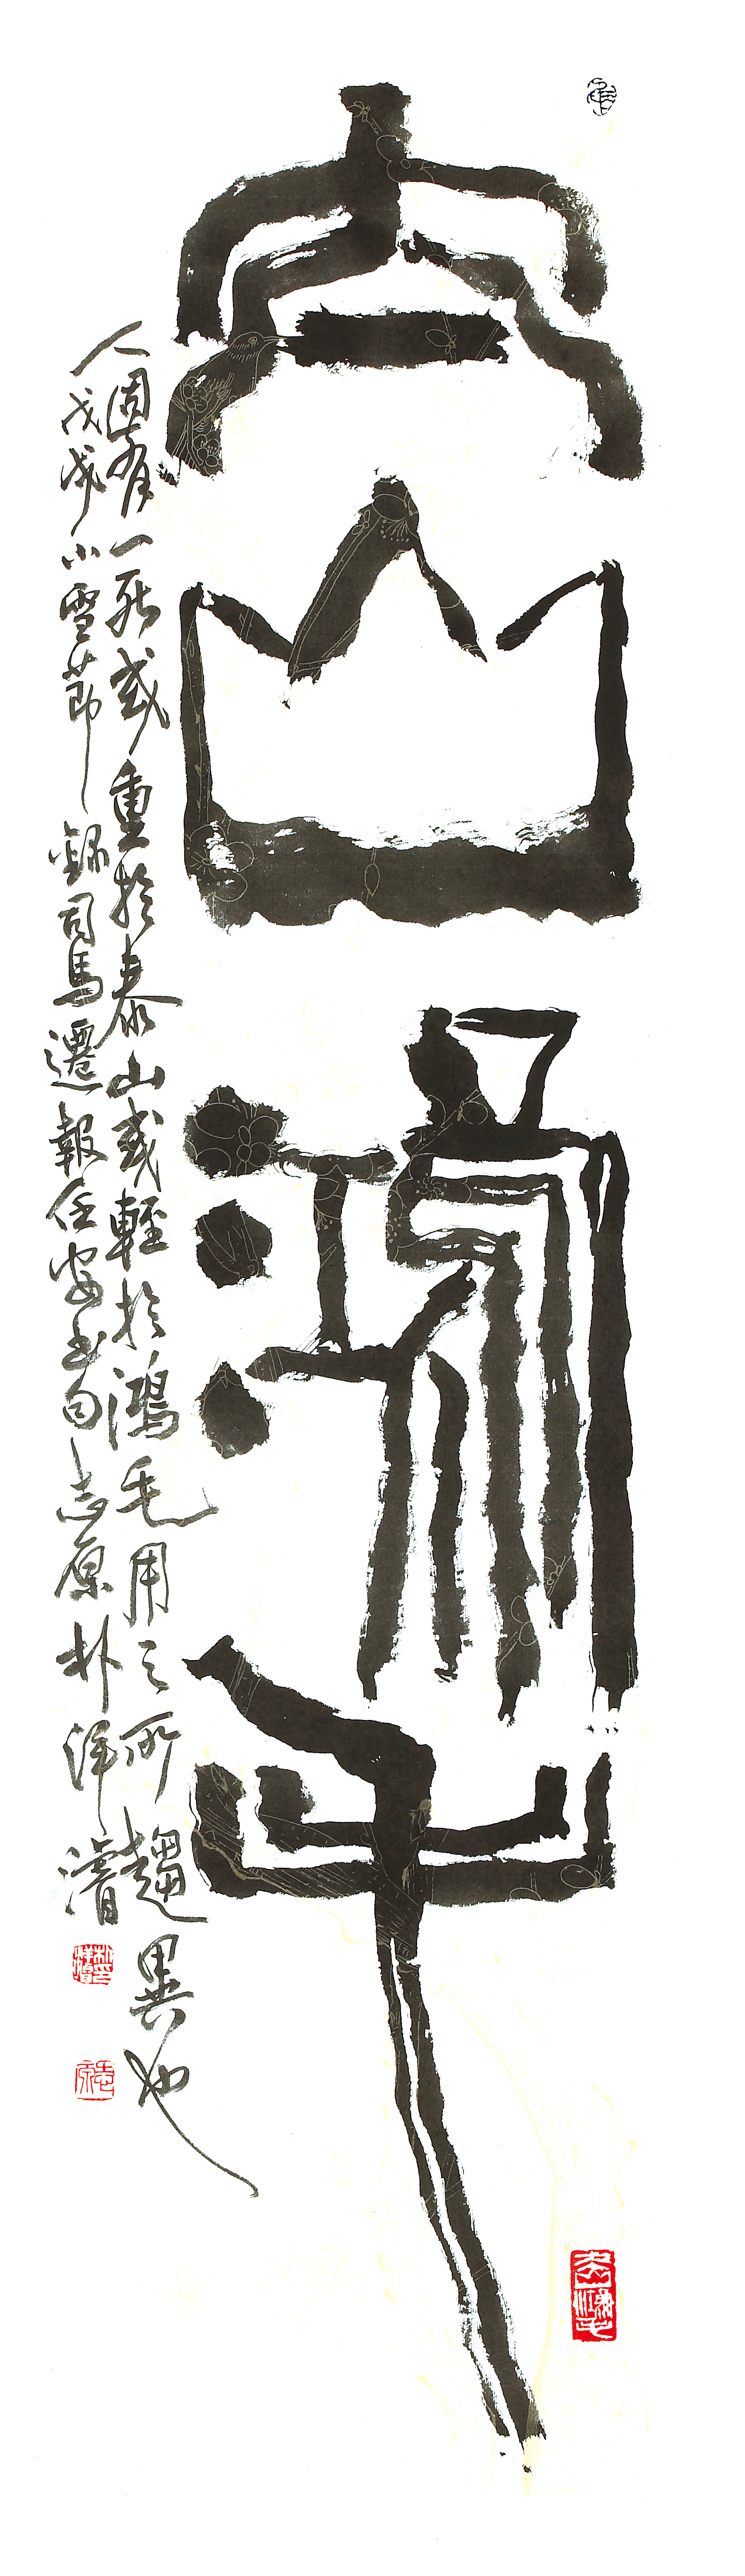 泰山鴻毛
人固有一死或重於泰山或輕於鴻毛用之所趨異也
戊戌小雪節錄司馬遷報任安書句志原朴洋濬